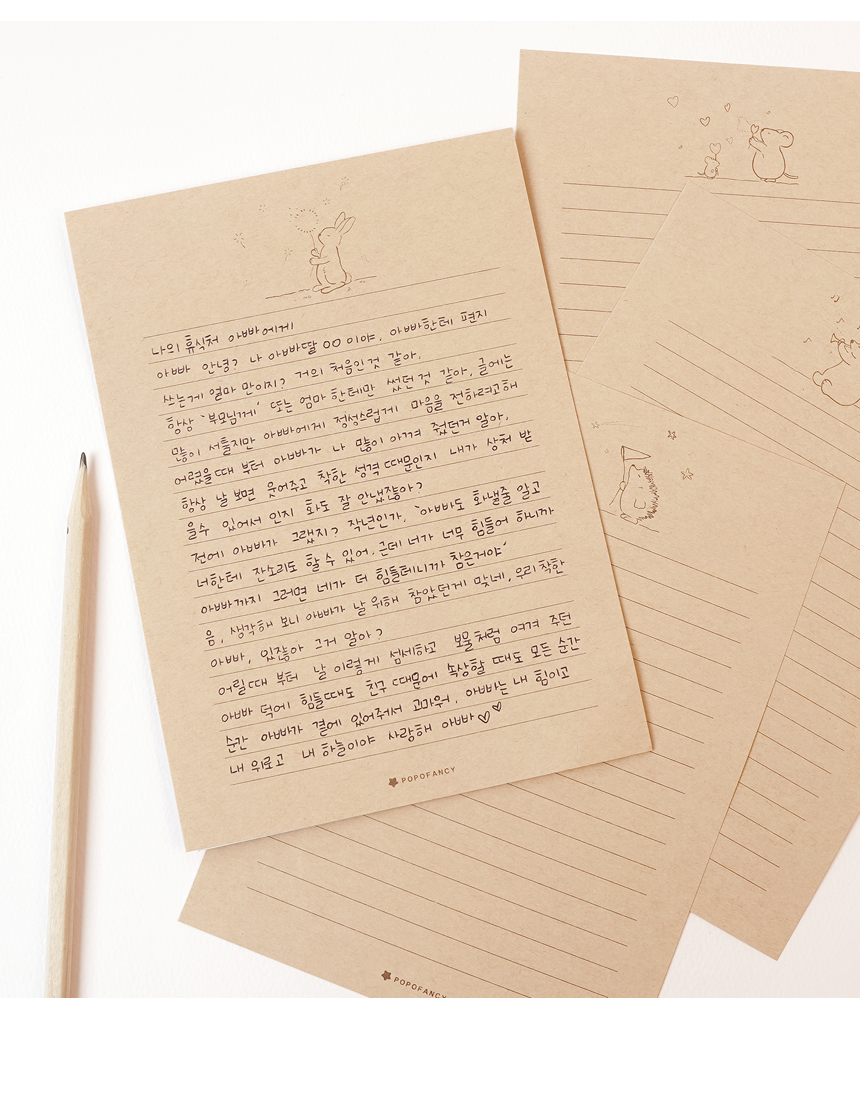 나의 휴식처 아빠에게
아빠 안녕? 나 아빠딸 00 이야. 아빠한테 편지
쓰는게 얼마 만이지? 거의 처음인것 같아.
항상 '부모님께' 또는 엄마 한테만 썼던것 같아. 글에는
많이 서툴지만 아빠에게 정성스럽게 마음을 전하려고해
어렸을때 부터 아빠가 나 많이 아껴 줬던거 알아.
항상 날 보면 웃어주고 착한 성격 때문인지 내가 상처 받
을수 있어서 인지 화도 잘 안냈잖아?
전에 아빠가 그랬지? 작년인가. '아빠도 화낼줄 알고
너한테 잔소리도 할 수 있어. 근데 너가 너무 힘들어 하니까
아빠까지 그러면 네가 더 힘들테니까 참은거야'
음, 생각해 보니 아빠가 날 위해 참았던게 맞네, 우리 착한
아빠, 있잖아 그거 알아?
어릴때 부터 날 이렇게 섬세하고 보물처럼 여겨 주던
아빠 덕에 힘들때도 친구 때문에 속상할 때도 모든 순간
순간 아빠가 곁에 있어줘서 고마워. 아빠는 내 힘이고
내 위로고 내 하늘이야 사랑해 아빠♡♡
POPOFANCY
POPOFANCY